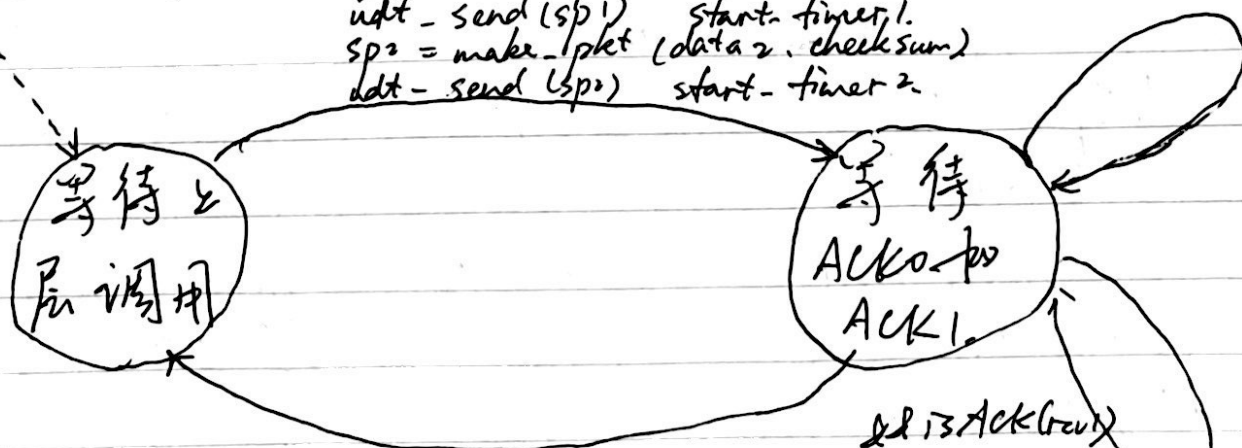 udt_send(sp1) start_timer1.
sp2 = make_pkt (data2. checksum)
udt_send (sp2) start_timer2.
等待上
层调用
等待
ACK0和
ACK1.
&& isACK(rcv1)